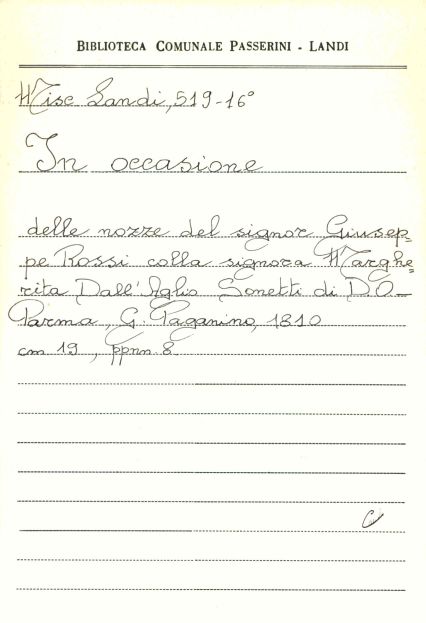 BIBLIOTECA COMUNALE PASSERINI - LANDI
Misc Landi, 519-16°
In occasione
delle nozze del signor Giusep=
pe Rossi colla signora Marghe=
rita Dall'Aglio Sonetti di D.O—
Parma, G. Paganino, 1810
cm 19, ppnn 8